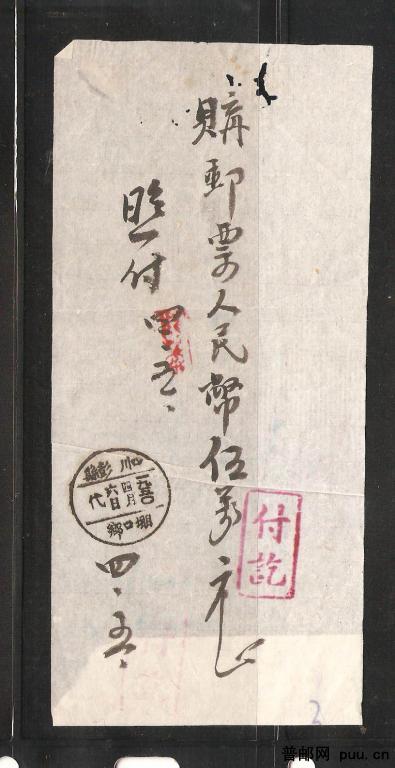 購郵票人民幣伍萬元正
付訖
照付
四、五、
四川彭縣
一九五〇
四月
六日
代
堋口鄉
四、五、
普邮网 puu.cn